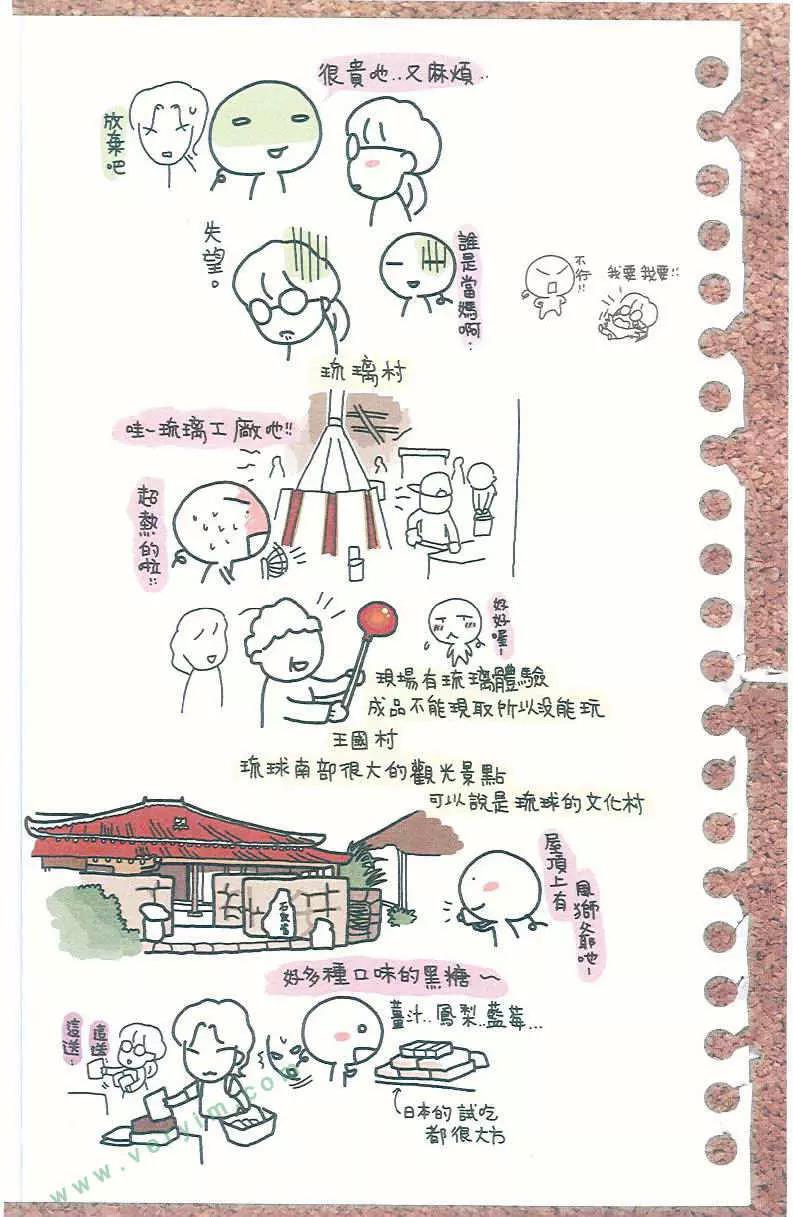 很貴吔..又麻煩..
放棄吧
失望。
誰是當媽啊..
不行!!
我要我要!!
琉璃村
哇~琉璃工廠吔!!
超熱的啦!!
好好喔~
現場有琉璃體驗
成品不能現取所以沒能玩
王國村
琉球南部很大的觀光景點
可以說是琉球的文化村
屋頂上有
風獅爺吔~
石敢當
好多種口味的黑糖~
薑汁..鳳梨..藍莓...
這送
這送
日本的試吃
都很大方
www.voryim.com